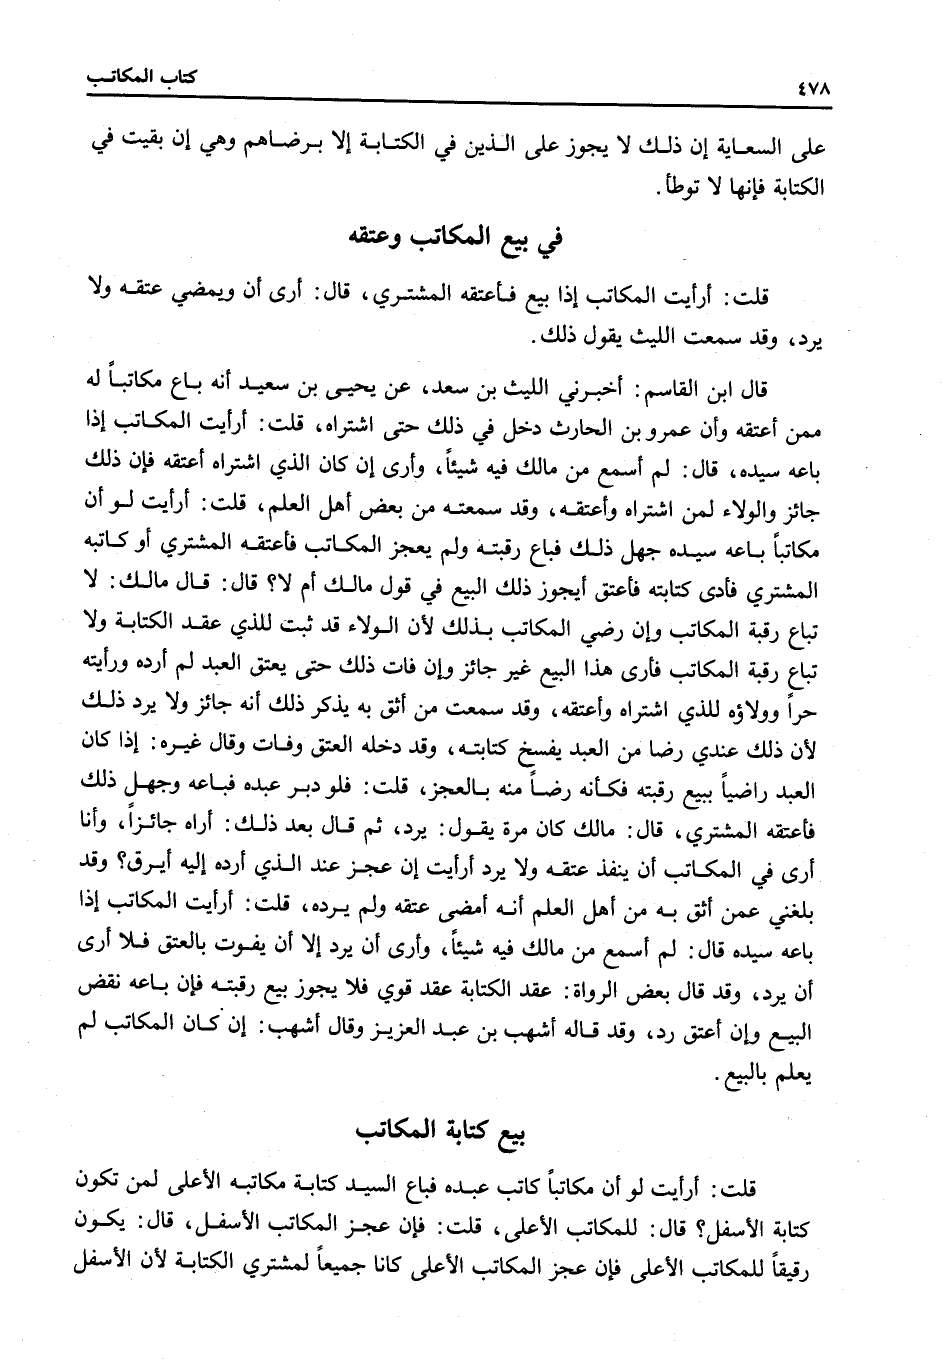 ٤٧٨
كتاب المكاتب
على السعاية إن ذلك لا يجوز على الذين في الكتابة إلا برضاهم وهي إن بقيت في
الكتابة فإنها لا توطأ.
في بيع المكاتب وعتقه
قلت: أرأيت المكاتب إذا بيع فأعتقه المشتري، قال: أرى أن ويمضي عتقه ولا
يرد، وقد سمعت الليث يقول ذلك.
قال ابن القاسم: أخبرني الليث بن سعد، عن يحيى بن سعيد أنه باع مكاتباً له
ممن أعتقه وأن عمرو بن الحارث دخل في ذلك حتى اشتراه، قلت: أرأيت المكاتب إذا
باعه سيده، قال: لم أسمع من مالك فيه شيئاً، وأرى إن كان الذي اشتراه أعتقه فإن ذلك
جائز والولاء لمن اشتراه وأعتقه، وقد سمعته من بعض أهل العلم، قلت: أرأيت لو أن
مكاتباً باعه سيده جهل ذلك فباع رقبته ولم يعجز المكاتب فأعتقه المشتري أو كاتبه
المشتري فأدى كتابته فأعتق أيجوز ذلك البيع في قول مالك أم لا؟ قال: قال مالك: لا
تباع رقبة المكاتب وإن رضي المكاتب بذلك لأن الولاء قد ثبت للذي عقد الكتابة ولا
تباع رقبة المكاتب فأرى هذا البيع غير جائز وإن فات ذلك حتى يعتق العبد لم أرده ورأيته
حراً وولاؤه للذي اشتراه وأعتقه، وقد سمعت من أثق به يذكر ذلك أنه جائز ولا يرد ذلك
لأن ذلك عندي رضا من العبد يفسخ كتابته، وقد دخله العتق وفات وقال غيره: إذا كان
العبد راضياً ببيع رقبته فكأنه رضاً منه بالعجز، قلت: فلو دبر عبده فباعه وجهل ذلك
فأعتقه المشتري، قال: مالك كان مرة يقول: يرد، ثم قال بعد ذلك: أراه جائزاً، وأنا
أرى في المكاتب أن ينفذ عتقه ولا يرد أرأيت إن عجز عند الذي أرده إليه أيرق؟ وقد
بلغني عمن أثق به من أهل العلم أنه أمضى عتقه ولم يرده، قلت: أرأيت المكاتب إذا
باعه سيده قال: لم أسمع من مالك فيه شيئاً، وأرى أن يرد إلا أن يفوت بالعتق فلا أرى
أن يرد، وقد قال بعض الرواة: عقد الكتابة عقد قوي فلا يجوز بيع رقبته فإن باعه نقض
البيع وإن أعتق رد، وقد قاله أشهب بن عبد العزيز وقال أشهب: إن كان المكاتب لم
يعلم بالبيع.
بيع كتابة المكاتب
قلت: أرأيت لو أن مكاتباً كاتب عبده فباع السيد كتابة مكاتبه الأعلى لمن تكون
كتابة الأسفل؟ قال: للمكاتب الأعلى، قلت: فإن عجز المكاتب الأسفل، قال: يكون
رقيقاً للمكاتب الأعلى فإن عجز المكاتب الأعلى كانا جميعاً لمشتري الكتابة لأن الأسفل